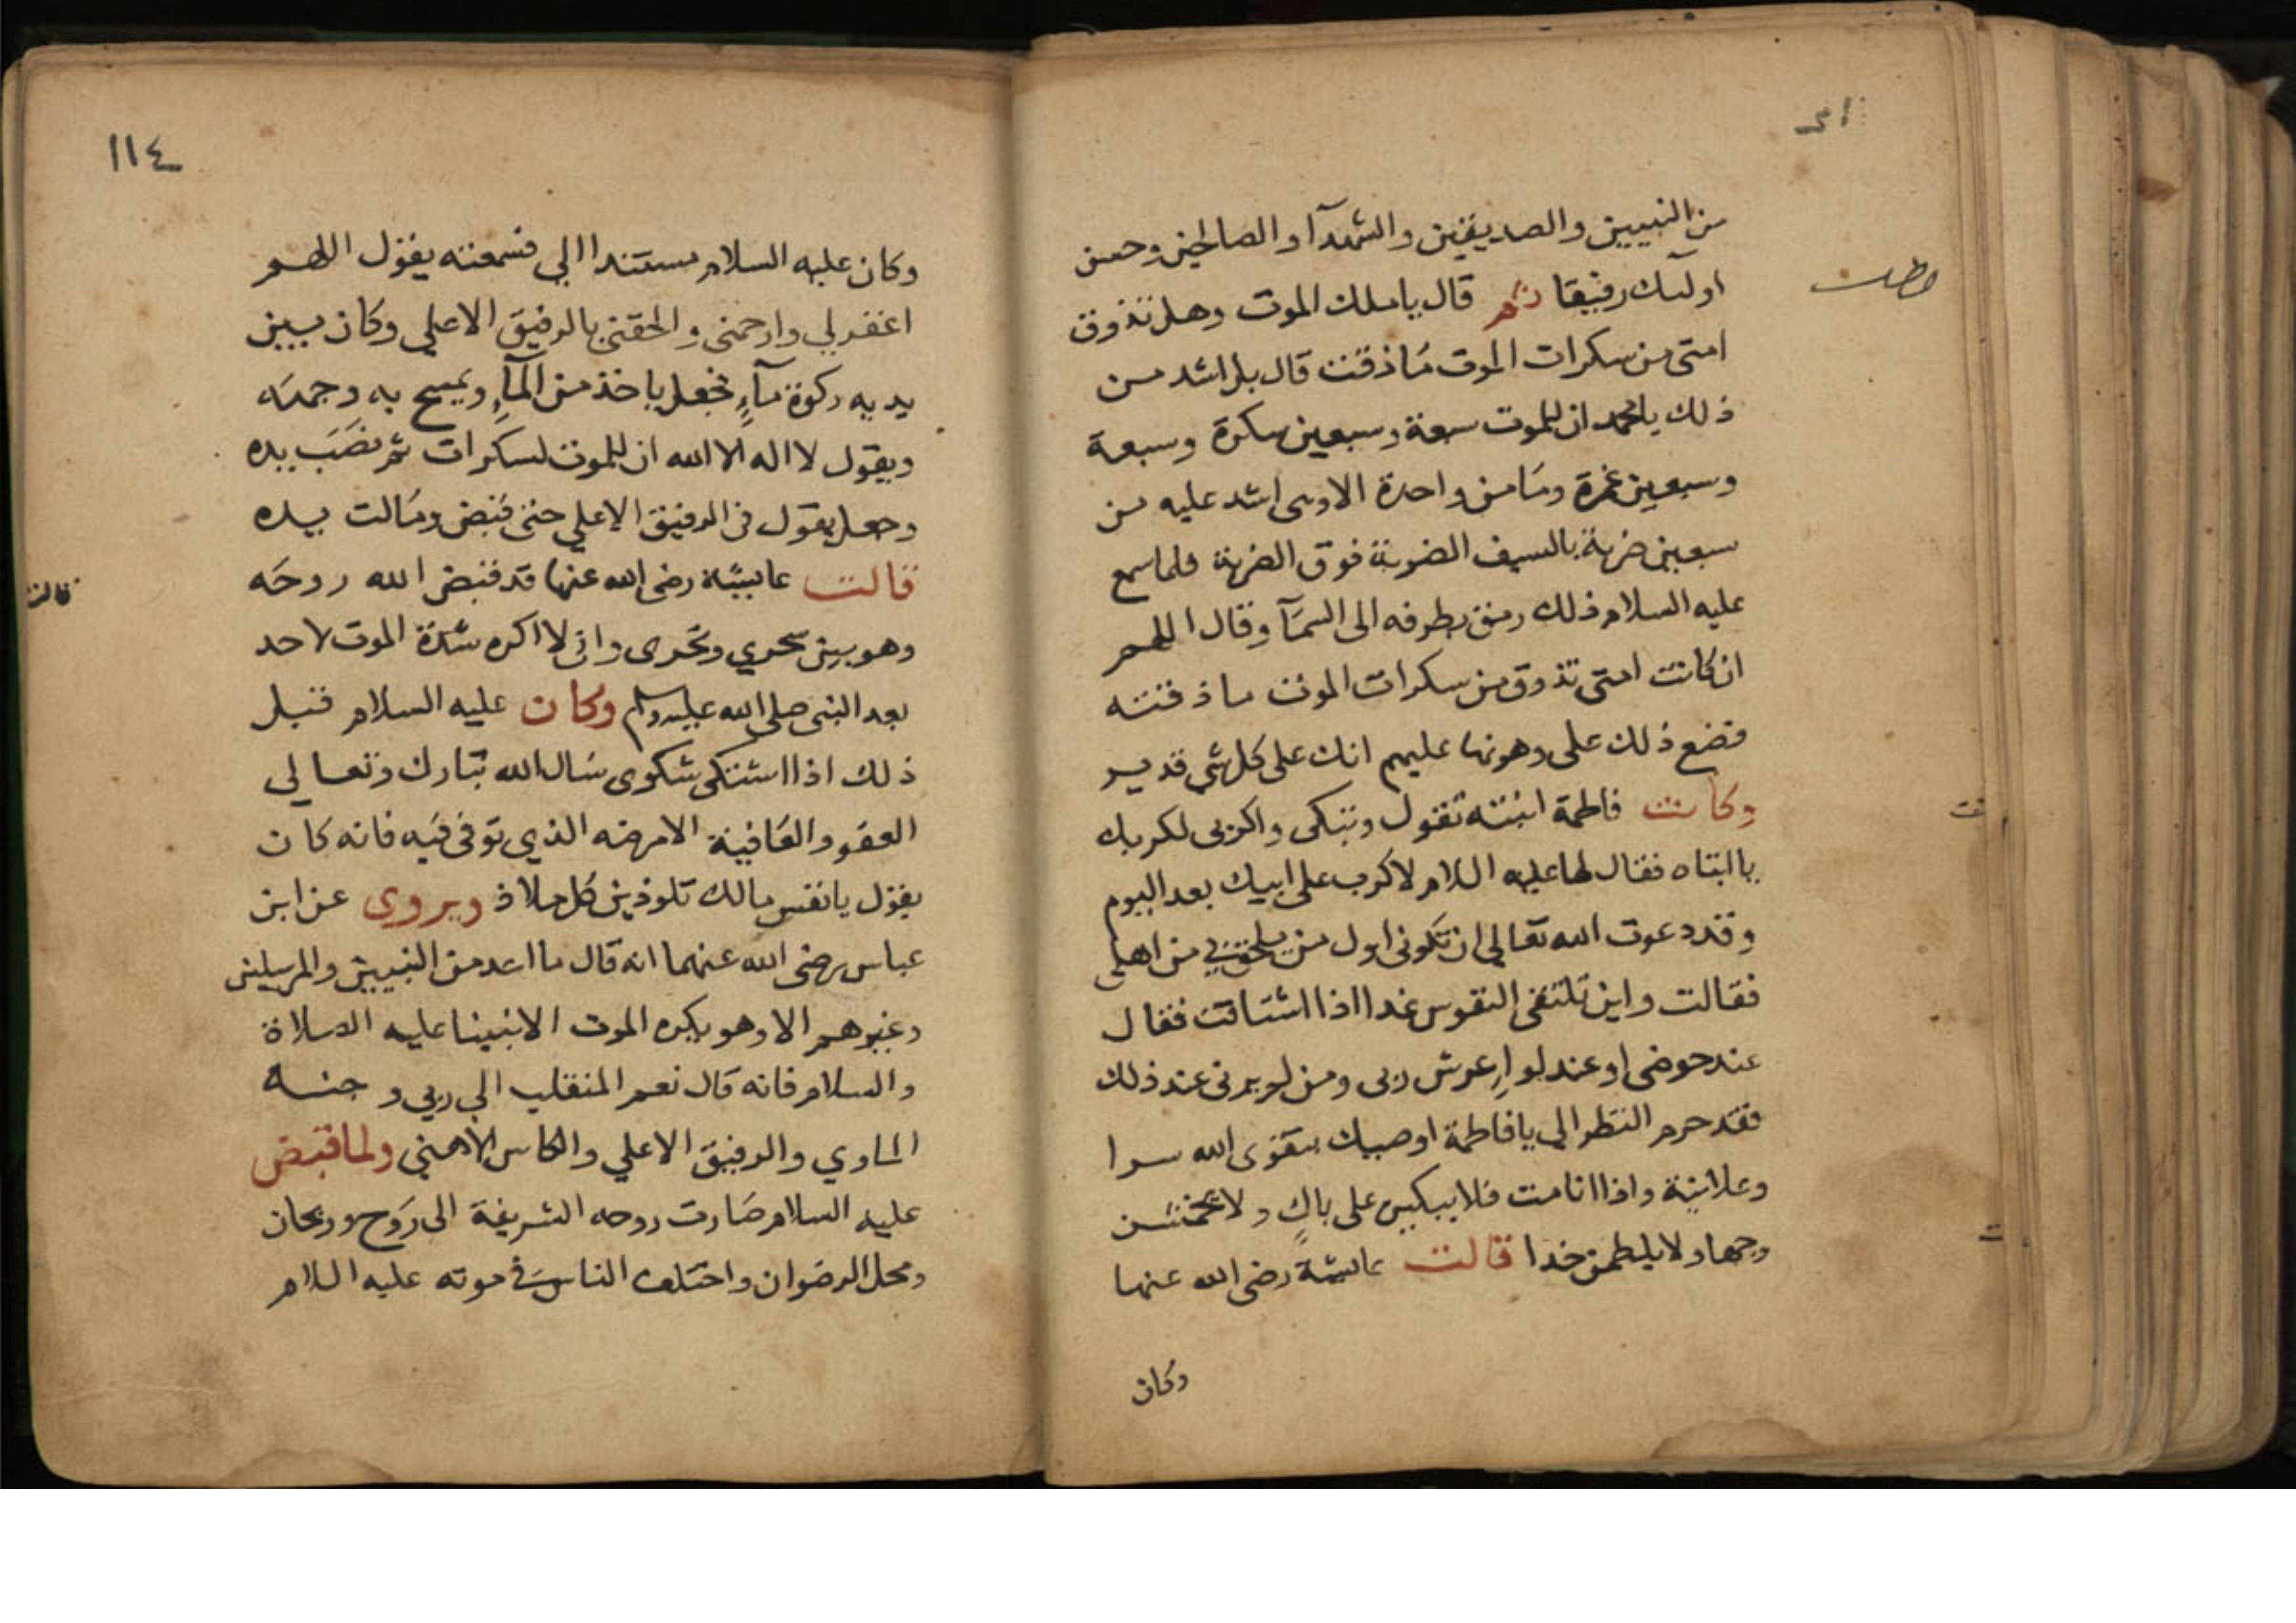 من النبيين والصديقين والشهدآ والصالحين وحسن
اولئك رفيقا ثم قال ياملك الموت وهل تذوق
امتى من سكرات الموت مَا ذقت قال بل اشد مـن
ذلك يامحمد ان للموت سبعة وسبعين سكرة وسبعة
وسبعين غمرة ومَا من واحدة الاوهى اشد عليه من
سبعين ضربة بالسيف الضربة فوق الضربة فلما سمع
عليه السلام ذلك رمق بطرفه الى السمَآ وقال اللهم
ان كانت امتى تذوق من سكرات الموت ما ذقته
فضع ذلك على وهونها عليهم انك على كل شي قدير
وكانت فاطمة ابنته تقول وتبكى واكربى لكربك
يا ابتاه فقال لها عليه السلام لا كرب على ابيك بعد اليوم
وقد دعوت الله تعالي ان تكونى اول من يلحقني من اهلى
فقالت واين تلتقى النفوس غدا اذا اشتاقت فقال
عند حوضى او عند لواء عرش ربى ومن لم يرنى عند ذلك
فقد حرم النظر الي يا فاطمة اوصيك بتقوى الله سرا
وعلانية واذا انا مت فلا يبكين على باكٍ ولا تخمشن
وجها ولا يلطمن خدا قالت عايشة رضى الله عنها
وكان
١١٤
وكان عليه السلام مستندا الي فسمعته يقول اللهم
اغفر لي وارحمنى والحقنى بالرفيق الاعلي وكان بين
يديه ركوة مآءٍ فجعل ياخذ من المآءِ ويمسح به وجهَه
ويقول لا اله الا الله ان للموت لسكرات ثم نصَبَ يده
وجعل يقول فى الرفيق الاعلي حتى قبض ومَالت يده
قالت عايشة رضى الله عنها قد قبض الله روحَه
وهو بين سحري ونحرى وانى لا اكره شدة الموت لاحد
بعد النبى صلى الله عليه وسلم وكان عليه السلام قبل
ذلك اذا اشتكى شكوى سَال الله تبارك وتعالي
العفو والعَافية الا مرضه الذي توفى فيه فانه كان
يقول يا نفس مالك تلوذين كل ملاذ ويروى عن ابن
عباس رضى الله عنهما انه قال ما احد من النبيين والمرسلين
وغيرهم الا وهو يكره الموت الا نبينا عليه الصلاة
والسلام فانه قال نعم المنقلب الي ربي وجنـه
الماوي والرفيق الاعلي والكاس الاهني ولما قبض
عليه السلام صَارت روحه الشريفة الى رَوح وريحان
ومحل الرضوان واختلف الناس فى موته عليه السلام
قالت